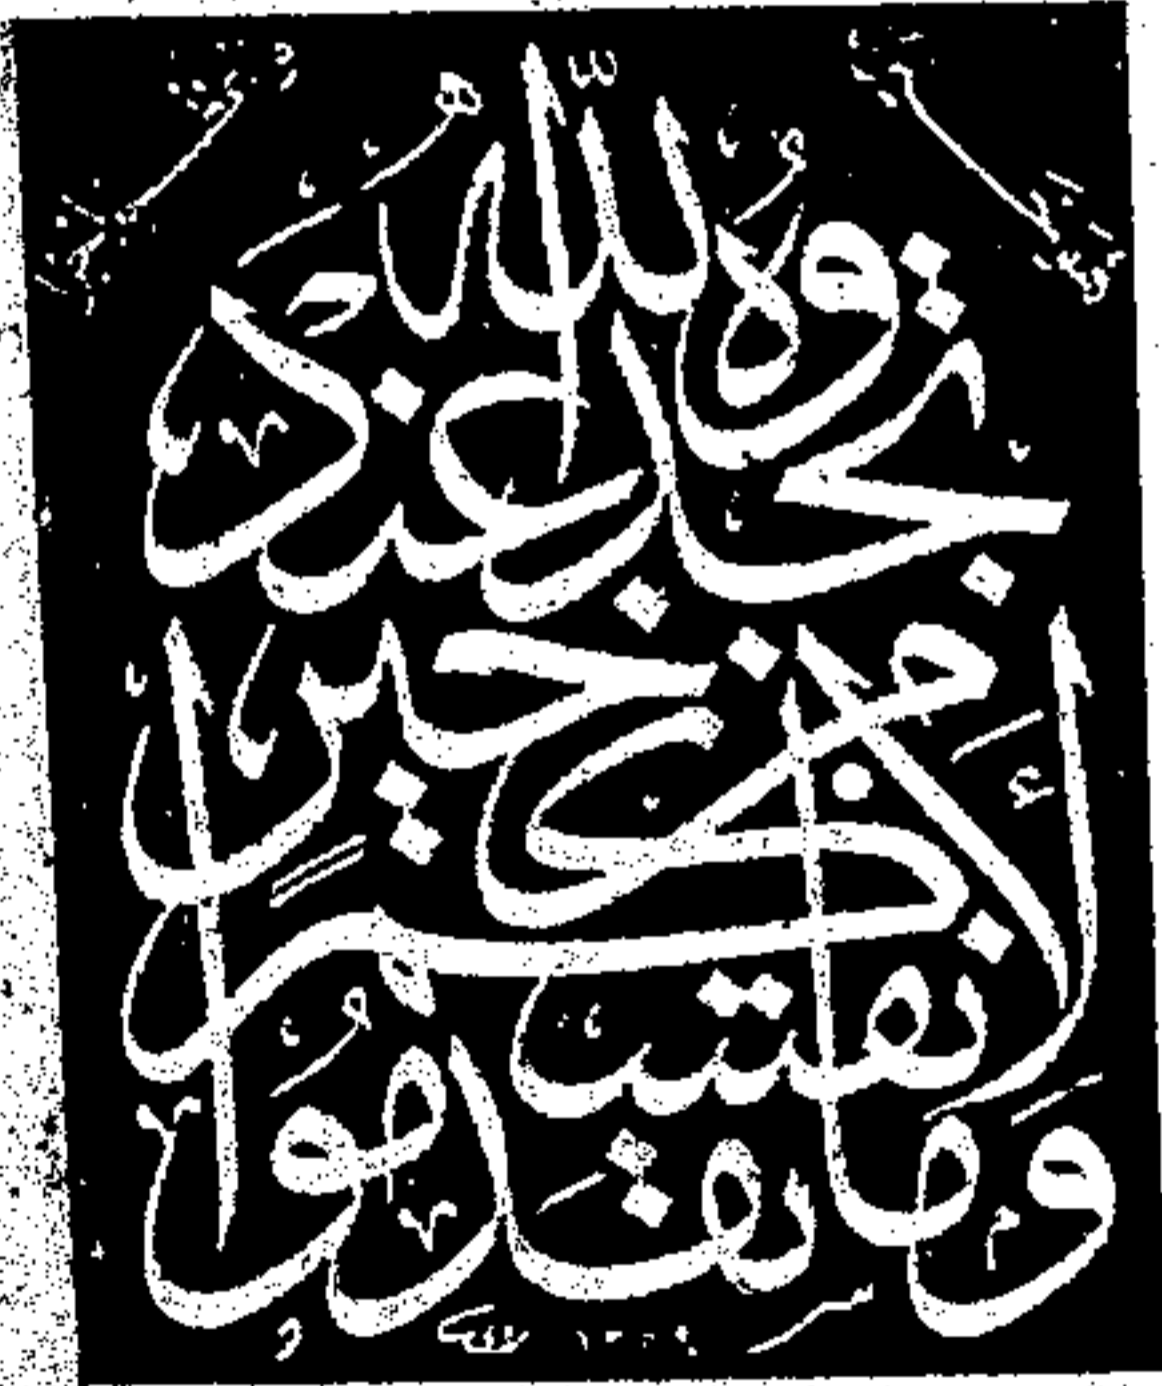 وما تقدموا
لأنفسكم من خير
تجدوه عند الله